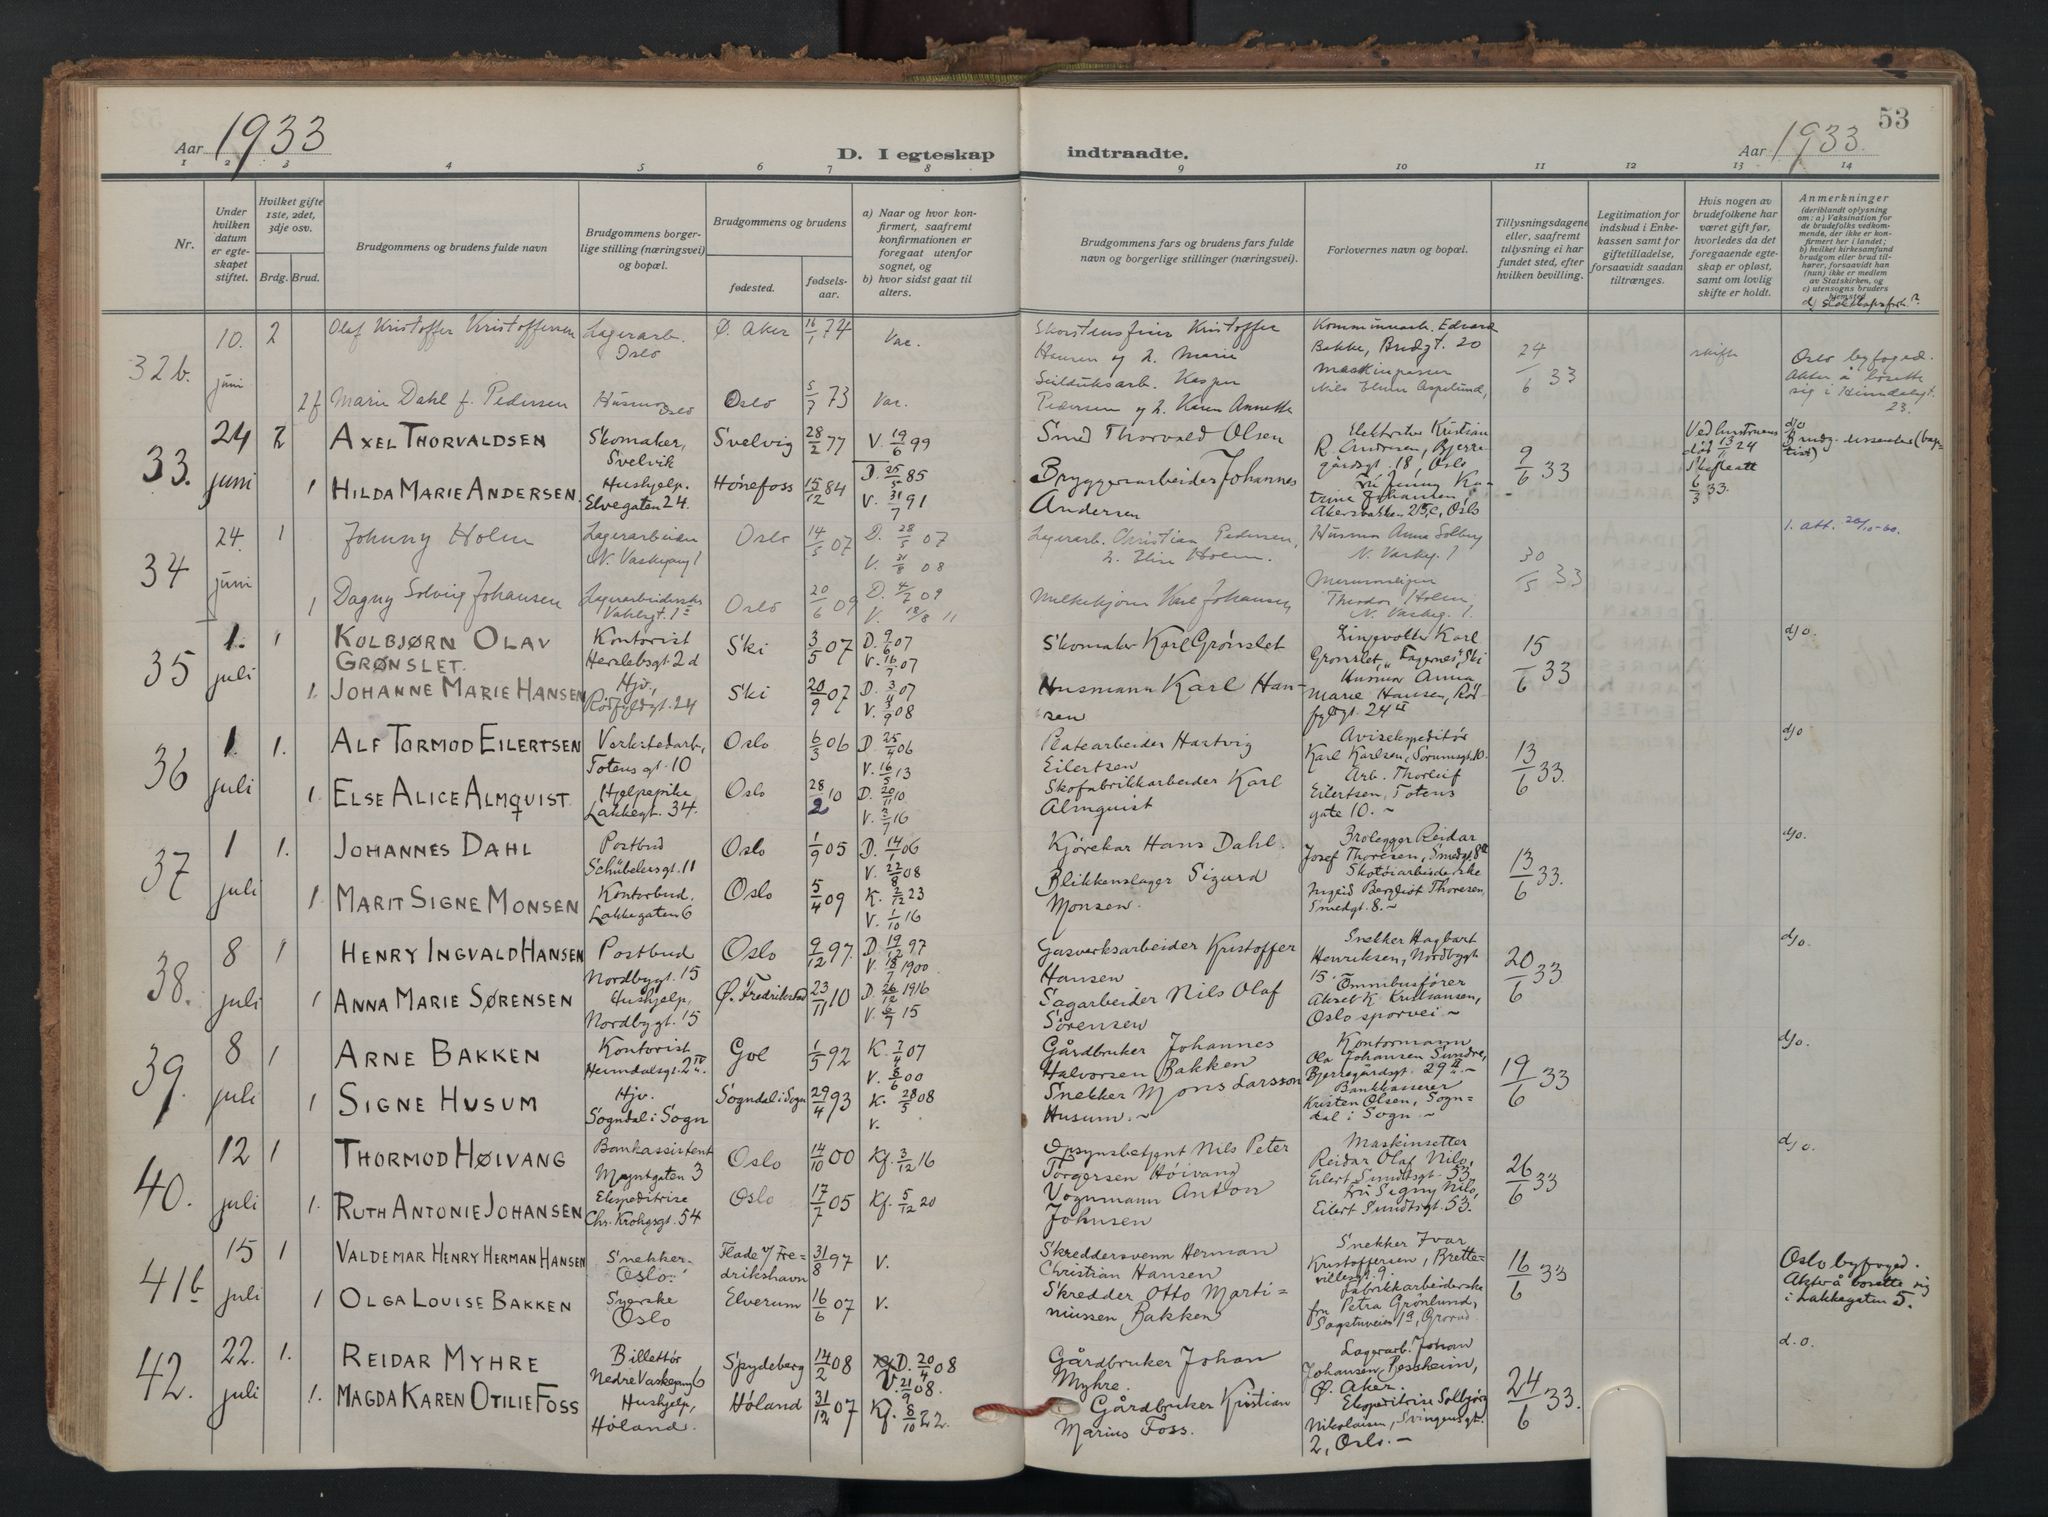 53
Aar 1933
D. I egteskap indtraadte.
Aar 1933.
1 2 3 4 5 6 7 8 9 10 11 12 13 14
Nr.
Under hvilken datum er egteskapet stiftet.
Hvilket gifte 1ste, 2det, 3dje osv.
Brdg. Brud.
Brudgommens og brudens fulde navn
Brudgommens borgerlige stilling (næringsvei) og bopæl.
Brudgommens og brudens
fødested.
fødselsaar.
a) Naar og hvor konfirmert, saafremt konfirmationen er foregaat utenfor sognet, og
b) hvor sidst gaat til alters.
Brudgommens fars og brudens fars fulde navn og borgerlige stillinger (næringsvei).
Forlovernes navn og bopæl.
Tillysningsdagene eller, saafremt tillysning ei har fundet sted, efter hvilken bevilling.
Legitimation for indskud i Enkekassen samt for giftetilladelse, forsaavidt saadan tiltrænges.
Hvis nogen av brudefolkene har været gift før, hvorledes da det foregaaende egteskap er opløst, samt om lovlig skifte er holdt.
Anmerkninger
(deriblandt oplysning om: a) Vaksination for de brudefolks vedkommende, der ikke er konfirmert her i landet; b) hvilket kirkesamfund brudgom eller brud tilhører, forsaavidt han (hun) ikke er medlem av Statskirken, og c) utensogns bruders hjemsted
32b. 10. juni 2 Olaf Kristoffer Kristoffersen Lagerarb. Oslo Ø. Aker 16/1 74 Vac.
Kristoffer Hansen og h. Marie
Kommunearb. Edvard Bakke, Brudgt. 20
24/6 33
skifte
Oslo byfoged. Akter å bosette sig i Heimdalsgt. 23.
2 f Marie Dahl f. Pedersen Husmor Oslo Oslo 5/7 73 Vac.
Seilduksarb. Kasper Pedersen og h. Karen Annette
Maskinpasser Nils Elmer Aspelund,
33. 24 juni 2 AXEL THORVALDSEN Skomaker, Svelvik Svelvig 28/2 77 V. 19/6 99
Smed Thorvald Olsen
Elektriker Kristian R. Andersen, Bjerregårdsgt. 18, Oslo
9/6 33
Ved hustruens død 13/11 24 Skifteatt 6/3 33.
d/o Brudg. dissenter (baptist)
1 HILDA MARIE ANDERSEN. Hushjelp. Elvegaten 24. Hønefoss 15/12 84 D. 25/5 85 V. 31/7 91
Bryggerarbeider Johannes Andersen
Frk Jenny Katrine Johansen, Akersbakken 25, c, Oslo
34 24. juni 1 Johnny Holm Lagerarbeider N. Vaskegang 1 Oslo 14/5 07 D. 28/5 07 V. 31/8 08
Lagerarb. Christian Pedersen, h. Elise Holm.
Husmor Anna Solberg N. Vaskeg. 1
30/5 33
1. att. 20/10-60.
1 Dagny Solvig Johansen Lagerarbeiderske Vahlsgt. 1 Oslo 20/6 09 D. 4/7 09 V. 18/8 11
Melkekjører Karl Johansen
Theodor Holm N. Vaskeg. 1.
35 1. juli 1 KOLBJØRN OLAV GRØNSLET. Kontorist Herslebsgt. 2 d Ski 3/5 07 D. 9/6 07 V. 16/7 07
Skomaker Karl Grønslet
Linjevokter Karl Grønslet, "Fagernes", Ski
15/6 33
d/o.
1. JOHANNE MARIE HANSEN Hjv, Rødfyldgt. 24 Ski 20/9 07 D. 3/4 07 V. 3/9 08
Husmann Karl Hansen
Husmor Anna Marie Hansen, Rødfyldgt. 24 II
36 1. juli 1. ALF TORMOD EILERTSEN Verkstedarb, Totens gt. 10 Oslo 6/3 06 D. 25/4 06 V. 16/5 13
Platearbeider Hartvig Eilertsen
Avisekspeditør Karl Karlsen, Sorumsgt. 10.
13/6 33.
d/o
1. ELSE ALICE ALMQUIST. Hjelpepike Lakkegt. 34. Oslo 28/2 10 D. 20/11 10 V. 3/7 16
Skofabrikkarbeider Karl Almquist
Arb. Thorleif Eilertsen, Totens gate 10. ~
37 1 juli 1. JOHANNES DAHL Postbud Schübelersgt. 11 Oslo 1/9 05 D. 14/1 06 V. 22/8 08
Kjørekar Hans Dahl.
Brolegger Reidar Josef Thoresen, Smedgt. 8 II
13/6 33.
d/o.
1. MARIT SIGNE MONSEN Kontorbud. Lakkegaten 6 Oslo 5/4 09 K. 2/12 23 V. 1/10 16
Blikkenslager Sigurd Monsen.
Skotøiarbeiderske Ingrid Bergliot Thoresen, Smedgt. 8. ~
38. 8 juli 1 HENRY INGVALD HANSEN Postbud Nordbygt. 15 Oslo 9/12 97. D. 19/12 97 V. 18/7 1900
Gasverksarbeider Kristoffer Hansen
Snekker Hagbart Henriksen, Nordbygt 15.
20/6 33
d/o.
1 ANNA MARIE SØRENSEN Hushjelp, Nordbygt. 15 Ø. Fredrikstad 23/11 10 D. 26/12 1916 V. 6/7 15
Sagarbeider Nils Olaf Sørensen
Omnibusfører Aksel K. Kristiansen, Oslo sporvei ~
39. 8 juli 1 ARNE BAKKEN Kontorist Heimdalsgt. 2 IV. Gol 1/5 92 K. 7/4 07 V. 8/6 00
Gårdbruker Johannes Halvorsen Bakken
Kontormann Ola Johansen Sundre, Bjerregårdsgt. 29 II. ~
19/6 33
d/o.
1 SIGNE HUSUM Hjv. Sogndal i Sogn Sogndal i Sogn 29/4 93 K. 28/5 08 V.
Snekker Mons Larsson Husum. ~
Bankkasserer Kristen Olsen, Sogndal i Sogn. ~
40. 12 juli 1 THORMOD HØIVANG Bankassistent Myntgaten 3 Oslo 14/10 00 Kf. 3/12 16
Opsynsbetjent Nils Peter Torgersen Høivang
Maskinsetter Reidar Olaf Nilo, Eilert Sundtsgt. 53.
26/6 33
d/o.
1. RUTH ANTONIE JOHANSEN Ekspeditrise Chr. Krohgsgt. 54 Oslo 17/7 05 Kf. 5/12 20
Vognmann Anton Johnsen
Fru Signy Nilo, Eilert Sundtsgt. 53.
41b 15 juli 1 VALDEMAR HENRY HERMAN HANSEN Snekker. Oslo. Flade v/ Fredrikshavn 31/8 97 V.
Skreddersvenn Herman Christian Hansen
Snekker Ivar Kristoffersen, Brettevillesgt. 9.
16/6 33
Oslo byfoged. Akter å bosette sig i Lakkegaten 5.
1 OLGA LOUISE BAKKEN Syerske Oslo Elverum 16/6 07 V.
Skredder Otto Martiniussen Bakken
Fabrikkarbeiderske fru Petra Grønlund, Sagstuveien 1a, Grorud
42. 22. juli 1. REIDAR MYHRE Billettør Nedre Vaskegang 6 Spydeberg 14/2 08 D. 20/4 08 V. 21/9 08.
Gårdbruker Johan Myhre.
Lagerarb. Johan Johansen, Bessheim, Ø. Aker.
24/6 33.
d. o.
1. MAGDA KAREN OTILIE FOSS Hushjelp, Høland. Høland 31/12 07 Kf. 8/10 22.
Gårdbruker Kristian Marius Foss.
Ekspeditrise Solbjørg Nikolaisen, Svingensgt. 2, Oslo. ~